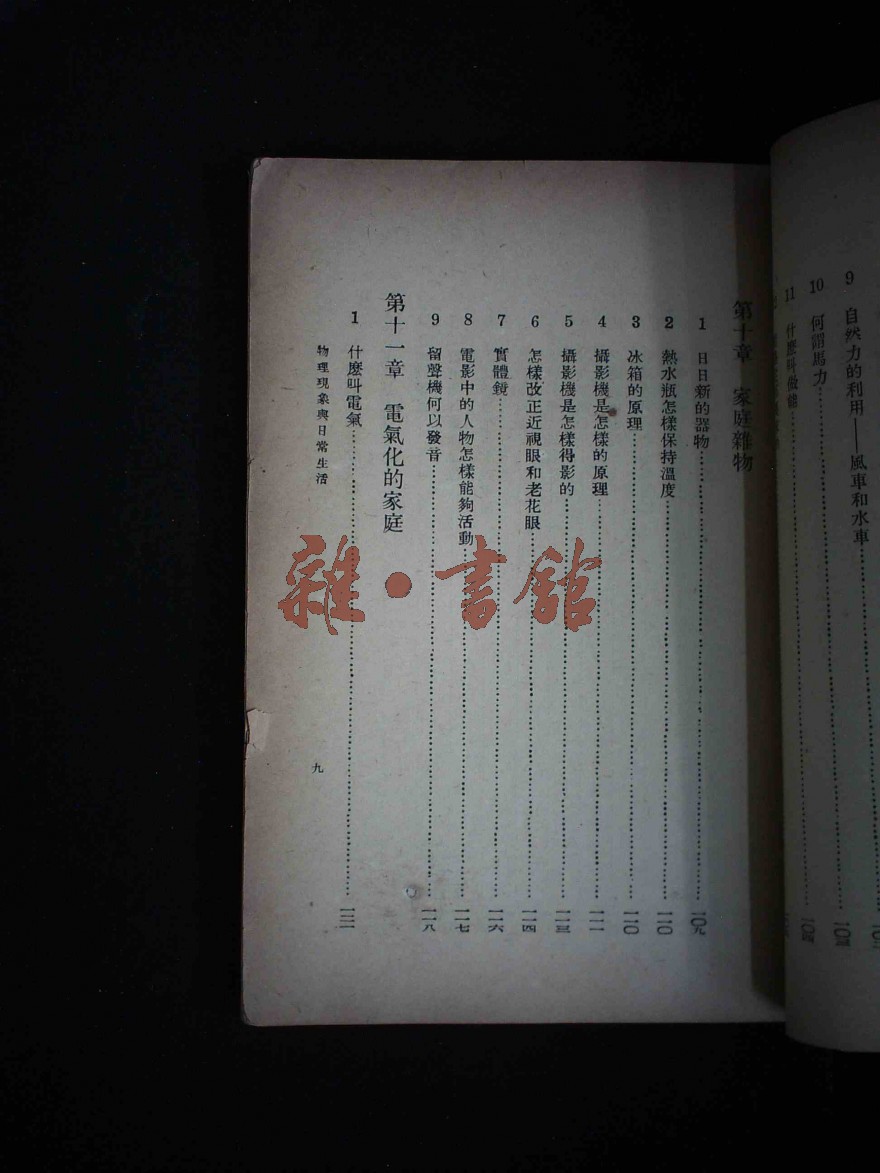 9 自然力的利用——風車和水車
10 何謂馬力 一〇四
11 什麽叫做
第十章 家庭雜物
1 日日新的器物 一〇九
2 熱水瓶怎樣保持溫度 一一〇
3 冰箱的原理 一一〇
4 攝影機是怎樣的原理 一一一
5 攝影機是怎樣得影的 一一三
6 怎樣改正近視眼和老花眼 一一四
7 實體鏡 一一六
8 電影中的人物怎樣能夠活動 一一七
9 留聲機何以發音 一一八
第十一章 電氣化的家庭
1 什麽叫電氣 一二一
物理現象與日常生活
九
雜·書館